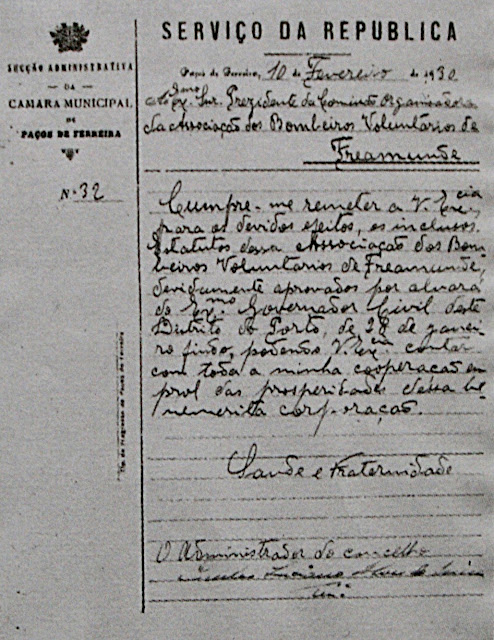 SERVIÇO DA REPUBLICA
SECÇÃO ADMINISTRATIVA
DA
CAMARA MUNICIPAL
DE
PAÇOS DE FERREIRA
Nº 32
Paços de Ferreira, 10 de Fevereiro de 1930
Snr. Prezidente da Comissão Organisadora
da Associação dos Bombeiros Voluntários de
Freamunde
Cumpre-me remeter a V. Excia
para os devidos efeitos, os inclusos
Estatutos dessa Associação dos Bom-
beiros Voluntarios de Freamunde,
devidamente aprovados por alvará
do Exmo. Governador Civil deste
Districto do Porto, de 28 de janei
ro findo, podendo V. Excia. contar
com toda a minha cooperação em
prol das prosperidades dessa be
nemerita corporação.
Saude e Fraternidade
O Administrador do concelho
Luciano